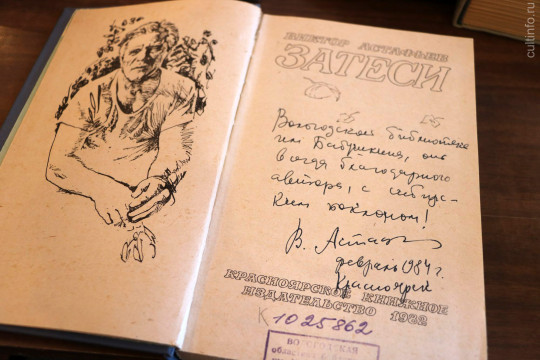 ВИКТОР АСТАФЬЕВ
ЗАТЕСИ
Вологодской библиотеке
им. Бабушкина, от
всегда благодарного
автора, с сибирс-
ким поклоном!
В. Астафьев
февраль 1984 г.
Красноярск
КРАСНОЯРСКОЕ КНИЖНОЕ
ИЗДАТЕЛЬСТВО 1982
К 1025862
ВОЛОГОДСКАЯ
cultinfo.ru